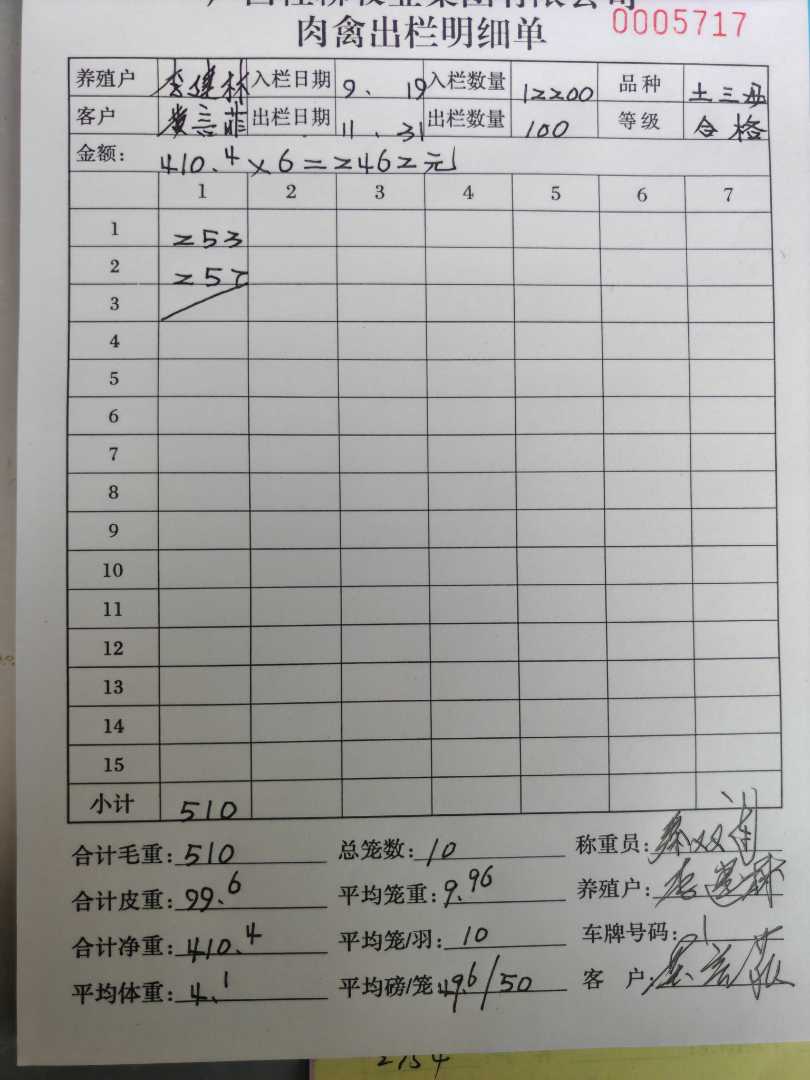 肉禽出栏明细单 0005717
养殖户 李健林 入栏日期 9.19 入栏数量 12200 品种 土三丹
客户 黄言菲 出栏日期 11.31 出栏数量 100 等级 合格
金额: 410.4×6=2462元
1 2 3 4 5 6 7
1 253
2 257
3
4
5
6
7
8
9
10
11
12
13
14
15
小计 510
合计毛重: 510 总笼数: 10 称重员:
合计皮重: 99.6 平均笼重: 9.96 养殖户: 李健林
合计净重: 410.4 平均笼/羽: 10 车牌号码:
平均体重: 4.1 平均磅/笼: 49.6/50 客 户:
2154